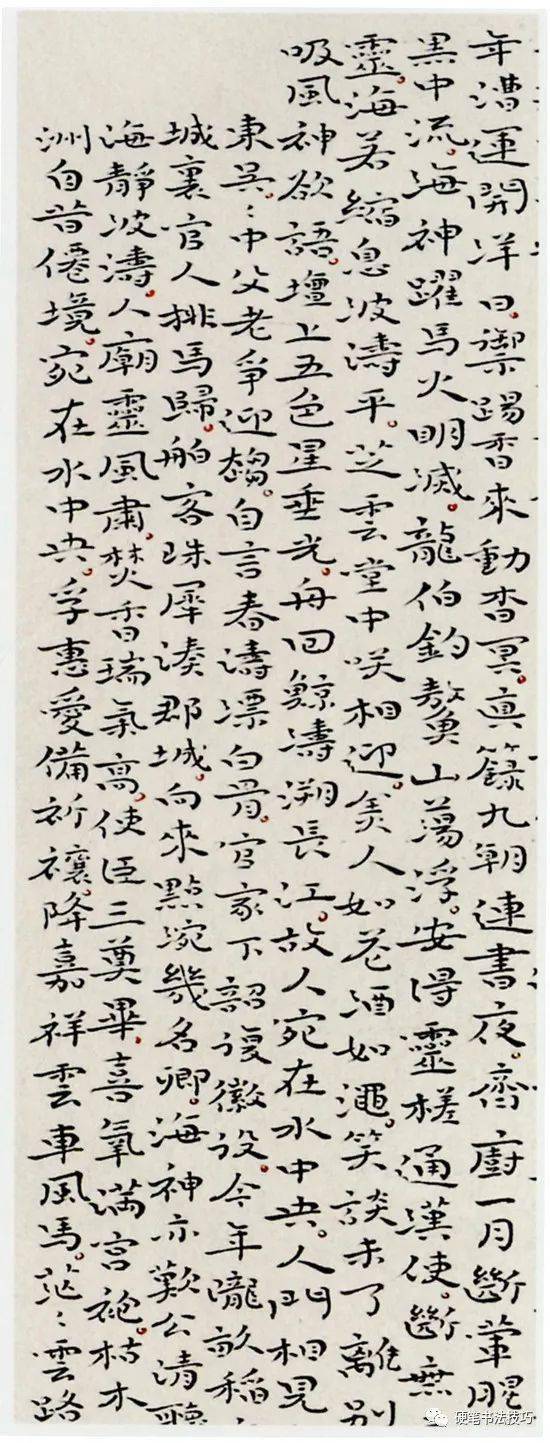 年漕運開洋日。禦賜香來動杳冥。真籙九朝連晝夜。齋廚一月斷葷腥
黑中流。海神躍馬火明滅。龍伯釣鰲山蕩浮。安得靈槎通漢使。斷無
靈。海若縮息波濤平。芝雲堂中咲相迎。美人如花酒如澠。笑談未了離別
吸風神欲語。壇上五色星垂光。舟回鯨濤溯長江。故人宛在水中央。人門相見
東吳。〻中父老爭迎趨。自言春濤漂白骨。官家下詔復徽設。今年隴畝稻
城裏官人排馬歸。舶客珠犀湊郡城。向來點涴幾名卿。海神亦歎公清
海靜波濤。人廟靈風肅。焚香瑞氣高。使臣三奠畢。喜氣滿宮袍。枯木
洲自昔僊境。宛在水中央。孚惠愛備祈禳。降嘉祥雲車風馬。茫〻雲路
硬笔书法技巧